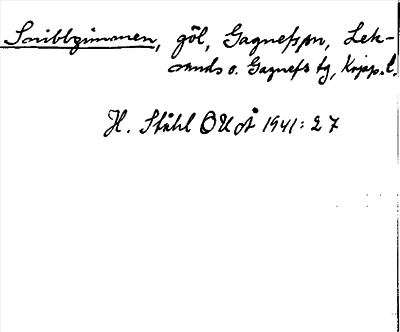 Snibbgimmen, göl, Gagnefs sn, Lek-
sands o. Gagnefs tg, Kopp. l.
H. Ståhl OUoÅ 1941:27